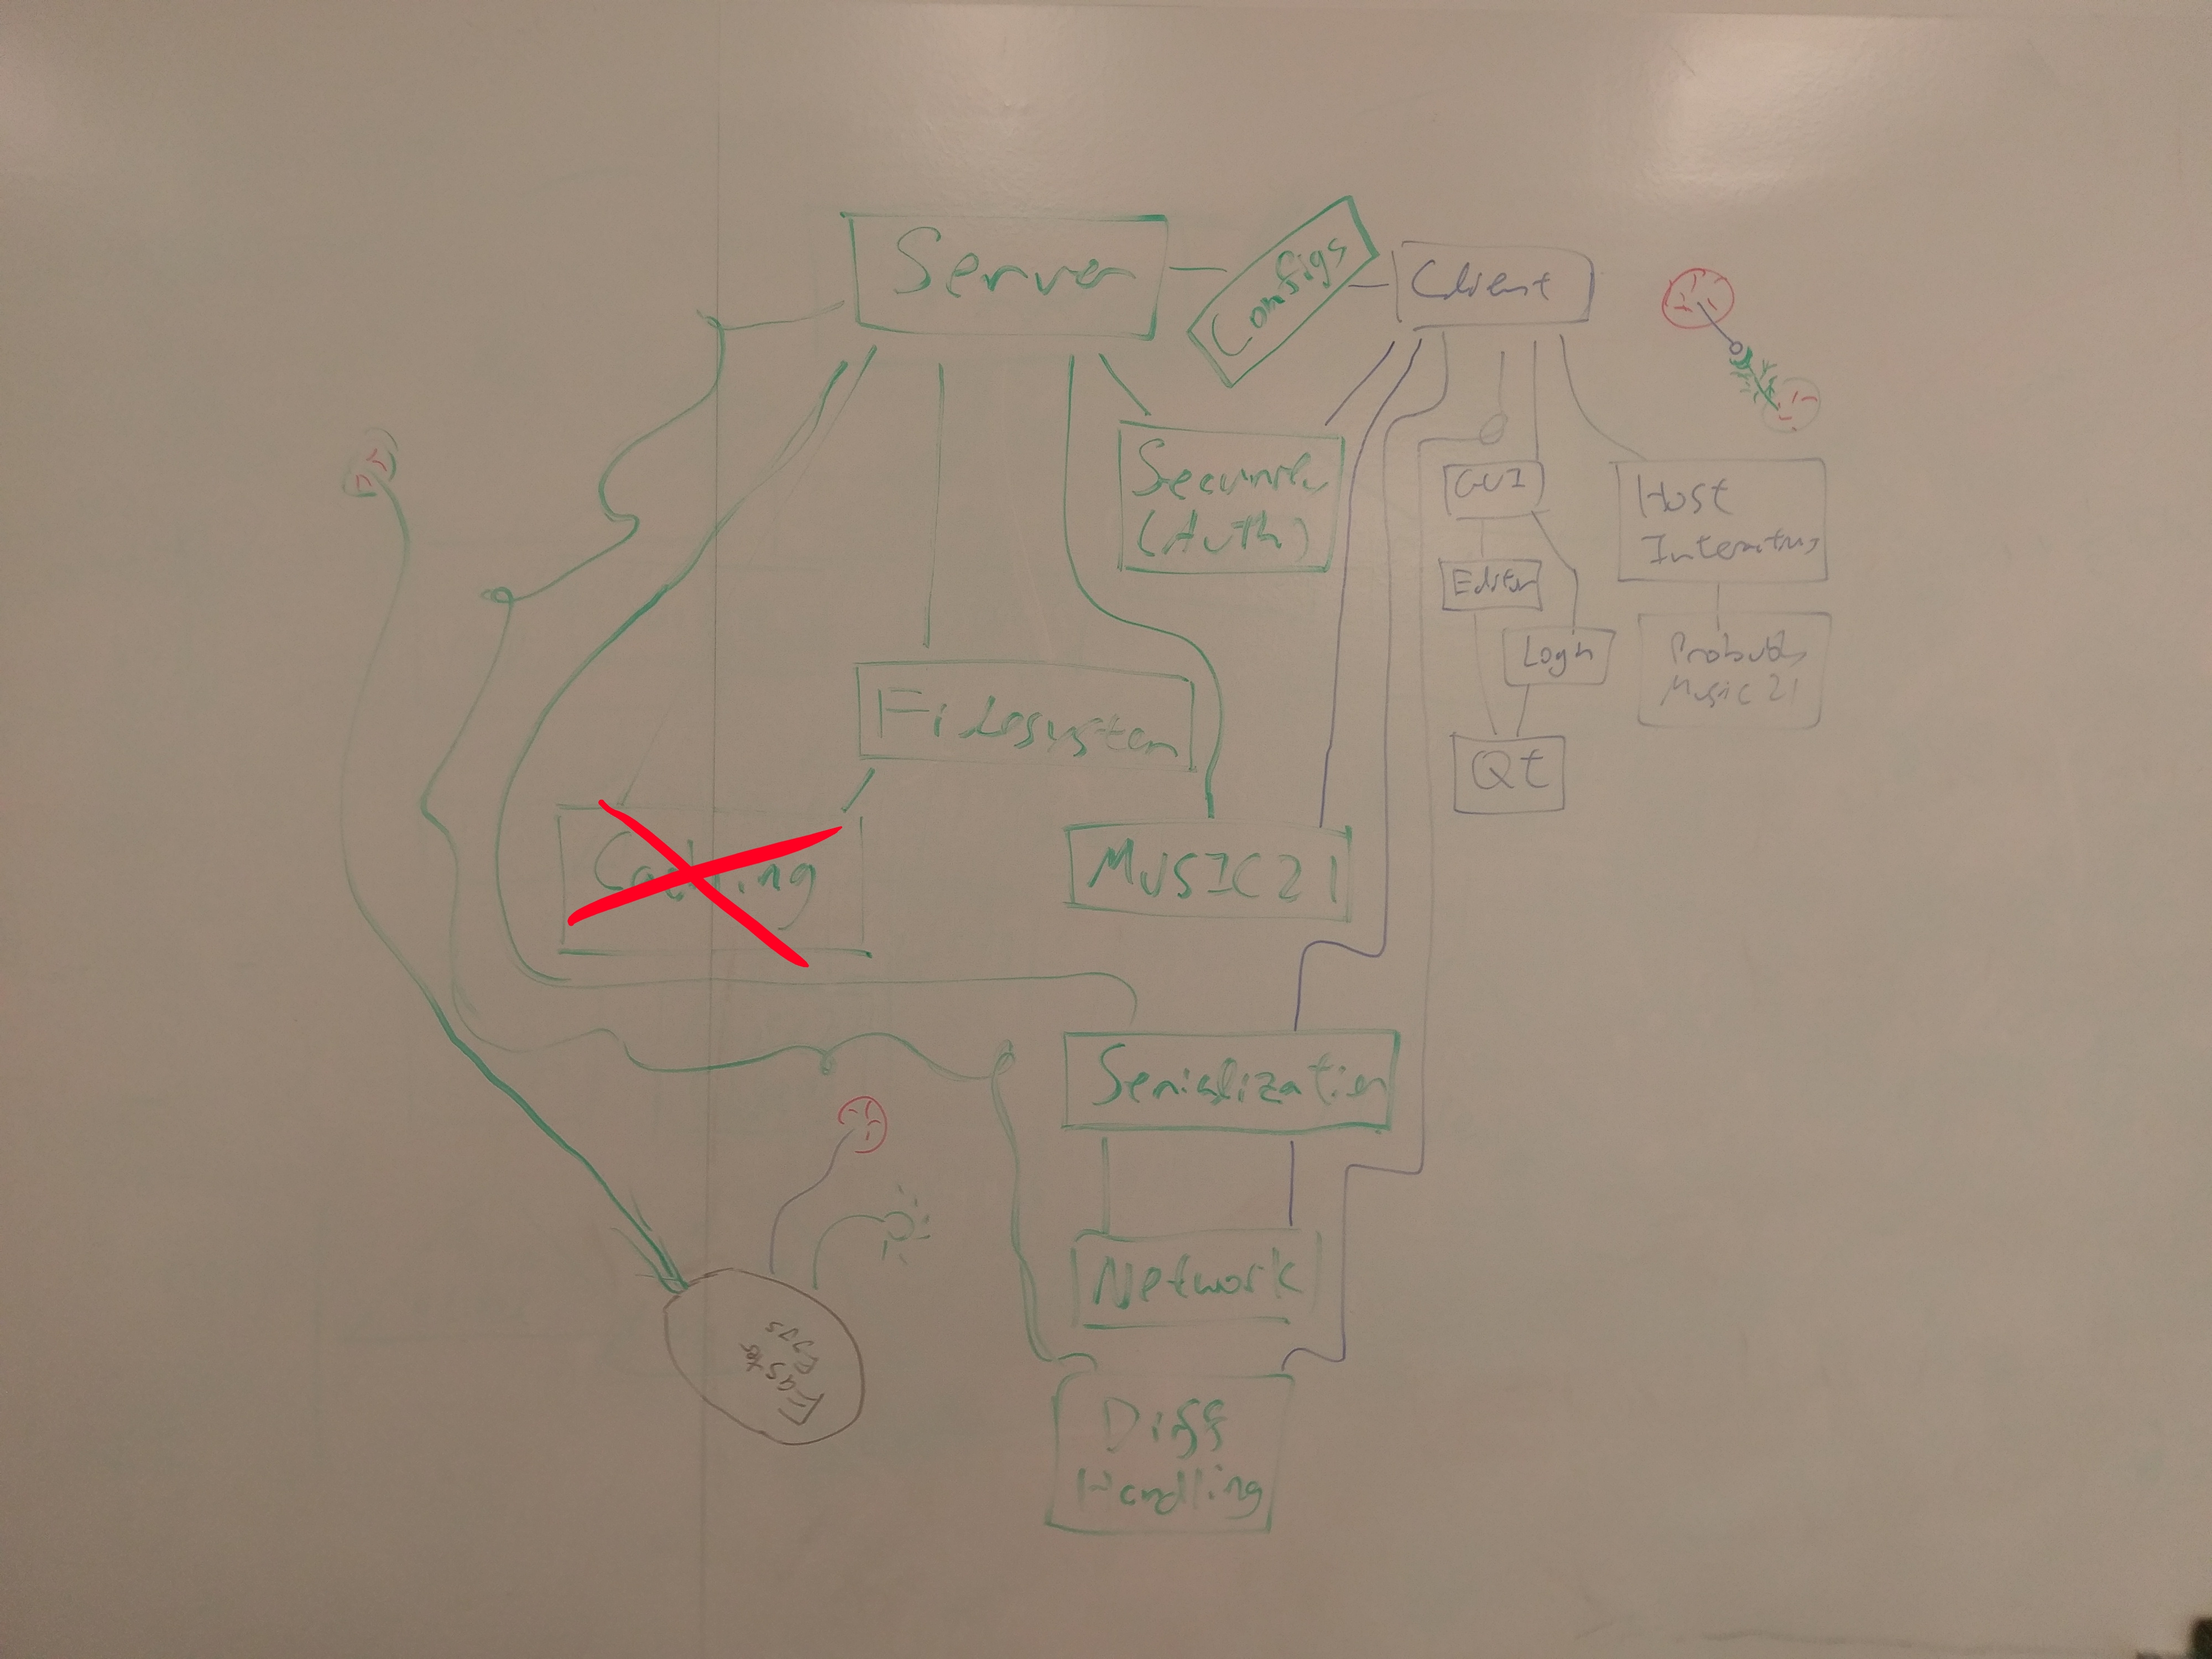 Server
Configs
Client
Security
(Auth)
GUI
Host
Interactions
Editor
Login
Probably
Music 21
Filesystem
Qt
Caching
MUSIC21
Serialization
Network
Easter
Eggs
Diff
Handling